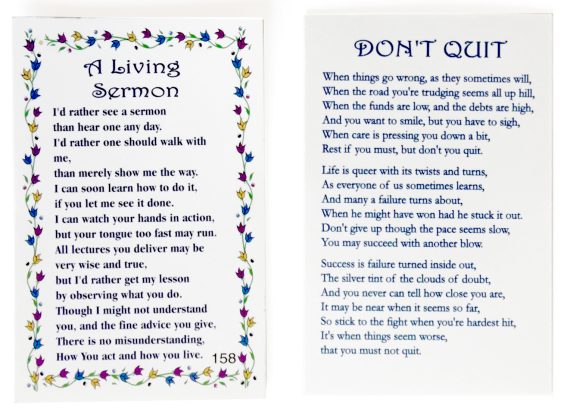 A Living
Sermon
I'd rather see a sermon
than hear one any day.
I'd rather one should walk with
me,
than merely show me the way.
I can soon learn how to do it,
if you let me see it done.
I can watch your hands in action,
but your tongue too fast may run.
All lectures you deliver may be
very wise and true,
but I'd rather get my lesson
by observing what you do.
Though I might not understand
you, and the fine advice you give,
There is no misunderstanding,
How You act and how you live.
158
DON'T QUIT
When things go wrong, as they sometimes will,
When the road you're trudging seems all up hill,
When the funds are low, and the debts are high,
And you want to smile, but you have to sigh,
When care is pressing you down a bit,
Rest if you must, but don't you quit.
Life is queer with its twists and turns,
As everyone of us sometimes learns,
And many a failure turns about,
When he might have won had he stuck it out.
Don't give up though the pace seems slow,
You may succeed with another blow.
Success is failure turned inside out,
The silver tint of the clouds of doubt,
And you never can tell how close you are,
It may be near when it seems so far,
So stick to the fight when you're hardest hit,
It's when things seem worse,
that you must not quit.